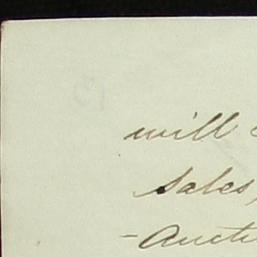 will
sales,
- Aucti